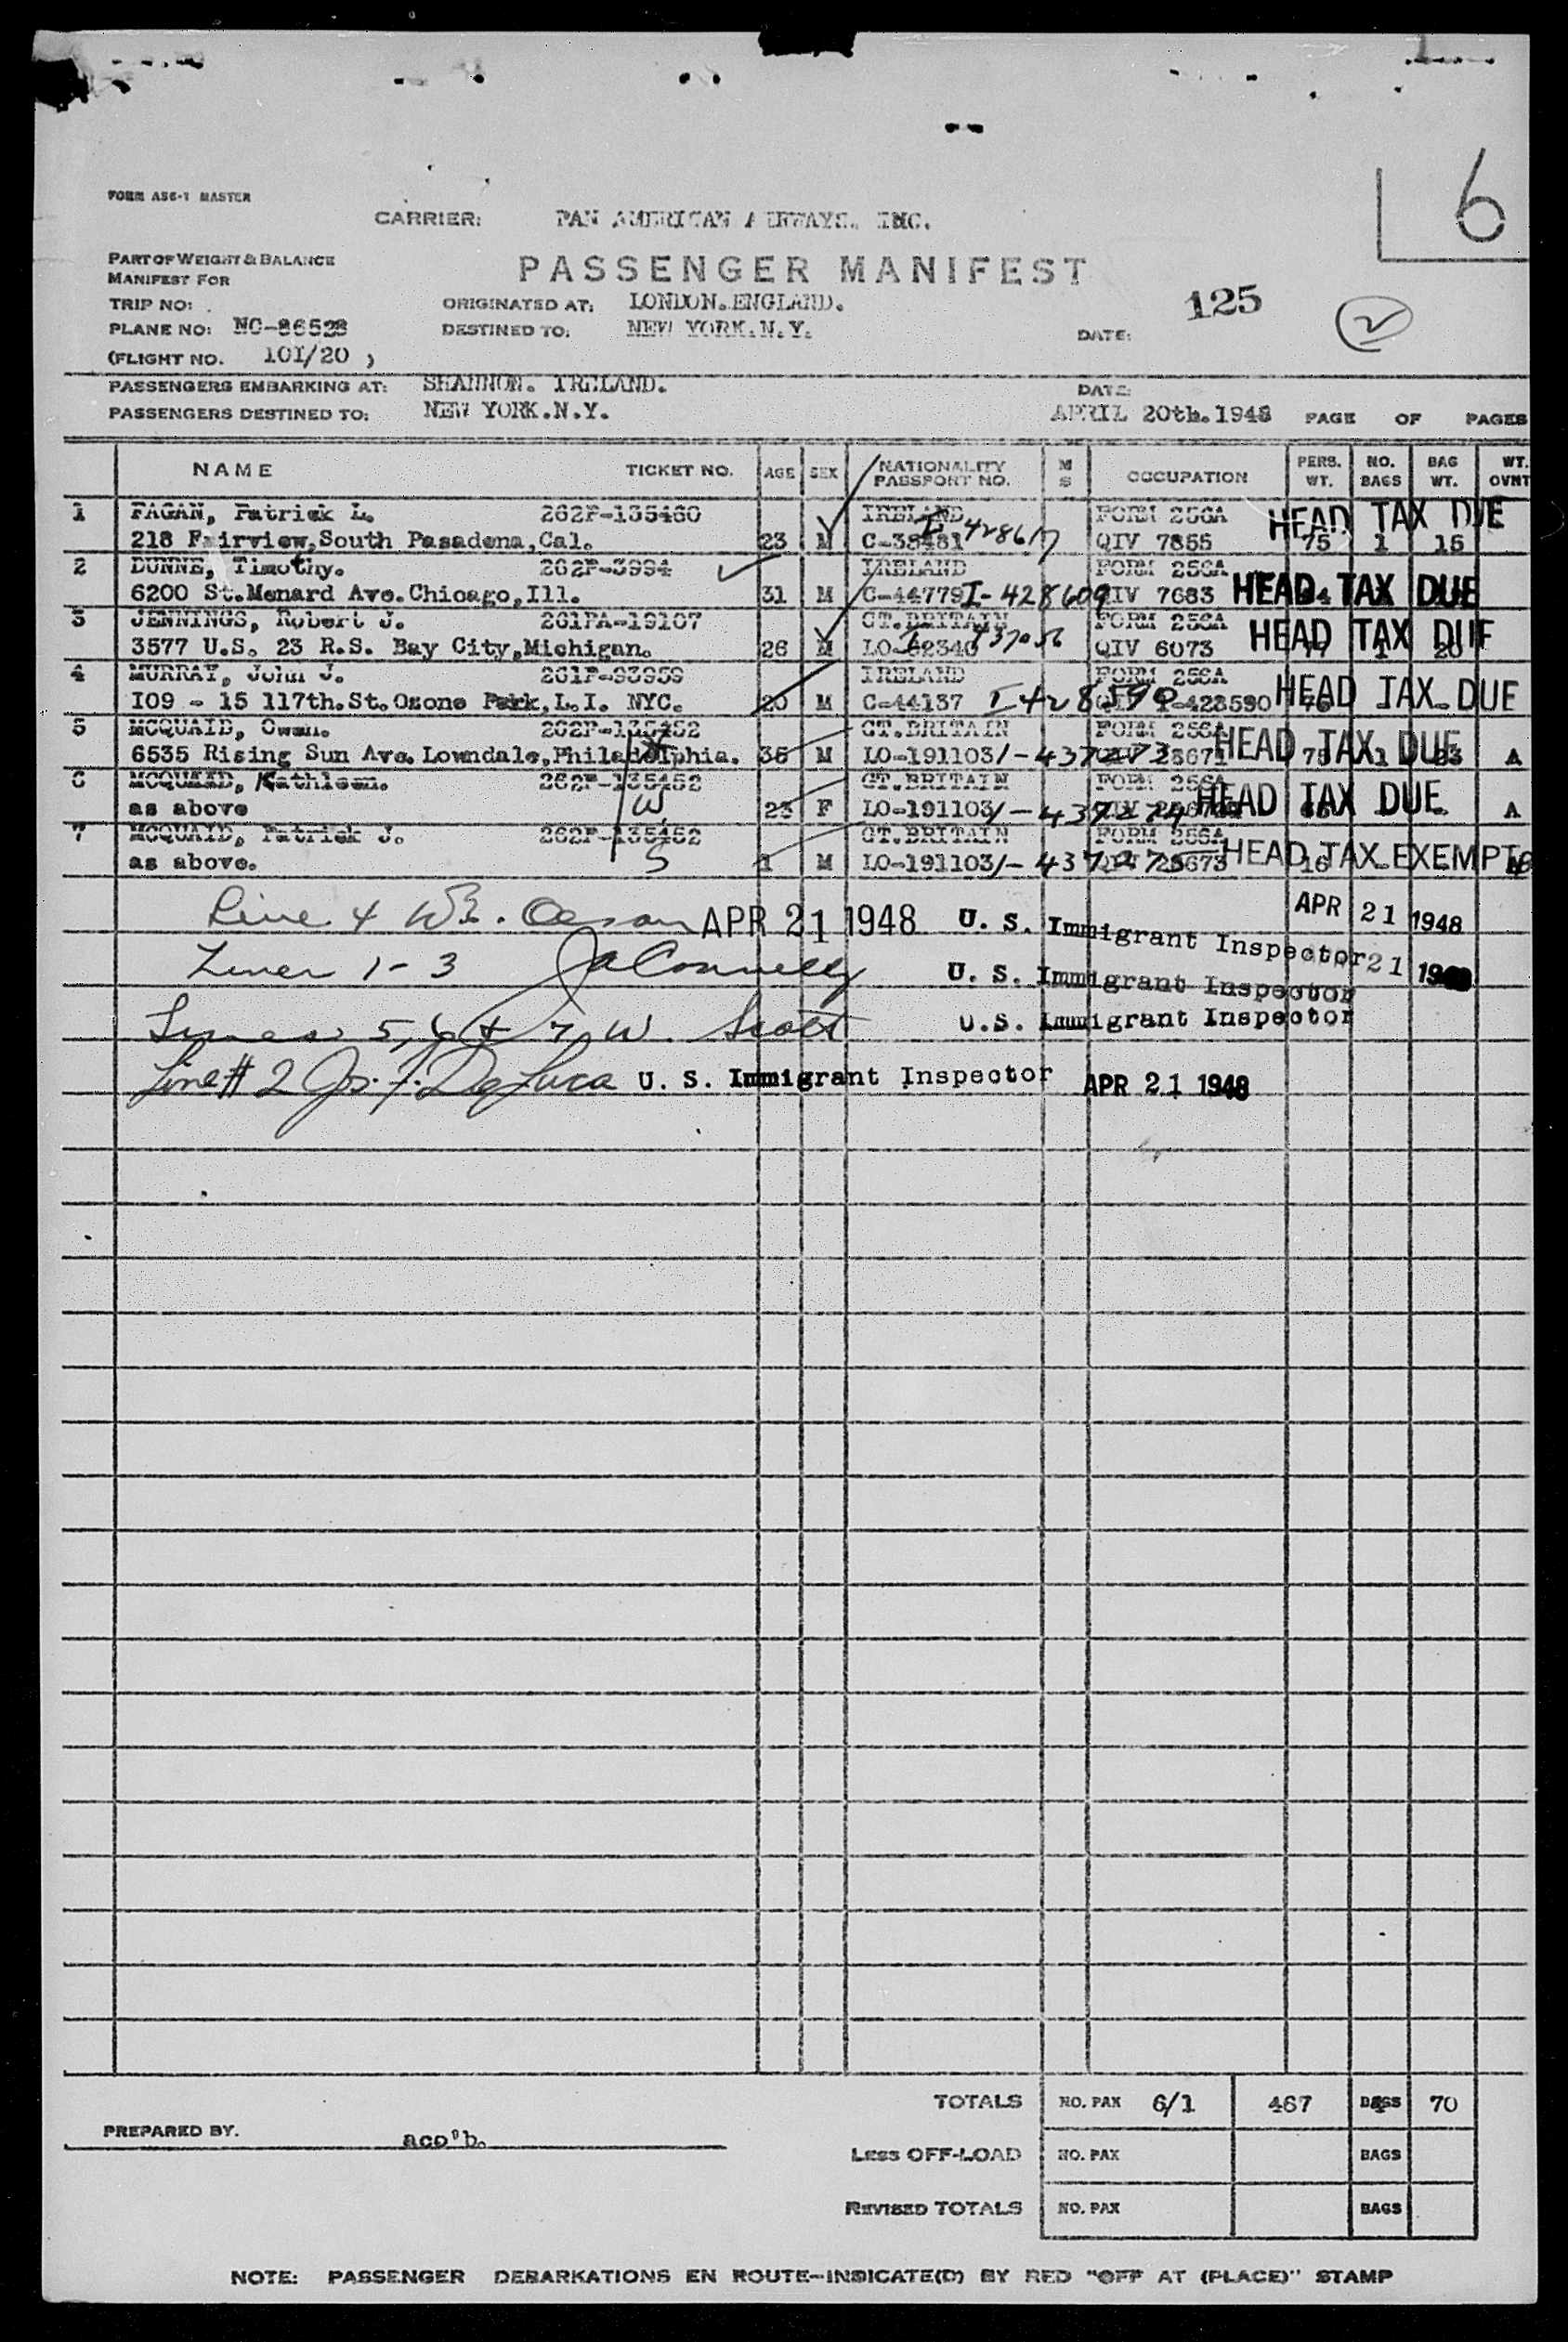 6
FORM AS6-1 MASTER
CARRIER: PAN AMERICAN AIRWAYS. INC.
PART OF WEIGHT & BALANCE
MANIFEST FOR
PASSENGER MANIFEST
125
2
TRIP NO:
ORIGINATED AT: LONDON.ENGLAND.
PLANE NO: NC-86528
DESTINED TO: NEW YORK.N.Y.
DATE:
(FLIGHT NO. 101/20 )
PASSENGERS EMBARKING AT: SHANNON. IRELAND.
DATE:
PASSENGERS DESTINED TO: NEW YORK.N.Y.
APRIL 20th.1948 PAGE OF PAGES
NAME TICKET NO. AGE SEX NATIONALITY PASSPORT NO. M S OCCUPATION PERS. WT. NO. BAGS BAG WT. WT. OVNT
1 FAGAN, Patrick L. 262P-135460 IRELAND FORM 256A HEAD TAX DUE
218 Fairview,South Pasadena,Cal. 23 M C-38481 I 428617 QIV 7855 75 1 15
2 DUNNE, Timothy. 262P-3994 IRELAND FORM 256A
6200 St.Menard Ave.Chicago,Ill. 31 M C-44779 I-428609 QIV 7683 HEAD TAX DUE
3 JENNINGS, Robert J. 261PA-19107 GT.BRITAIN FORM 256A HEAD TAX DUE
3577 U.S. 23 R.S. Bay City,Michigan. 26 M LO-62340 I 437056 QIV 6073 77 1 20
4 MURRAY, John J. 261P-93959 IRELAND FORM 256A
I09 - 15 117th.St.Ozone Park,L.I. NYC. 20 M C-44137 I 428590 I-428590 HEAD TAX DUE
5 MCQUAID, Owen. 262P-135452 GT.BRITAIN FORM 256A HEAD TAX DUE
6535 Rising Sun Ave. Lowndale,Philadelphia. 36 M LO-191103 I-437273 QIV 23671 75 1 23 A
6 MCQUAID, Kathleen. 262P-135452 GT.BRITAIN FORM 256A HEAD TAX DUE
as above W 23 F LO-191103 I-437274 A
7 MCQUAID, Patrick J. 262P-135452 GT.BRITAIN FORM 256A HEAD TAX EXEMPT
as above. S 1 M LO-191103 I-437275 QIV 23673 16
Line 4 APR 21 1948 U. S. Immigrant Inspector APR 21 1948
Lines 1-3 J A Connelly U. S. Immigrant Inspector 21
Lines 5, 6 + 7 W. Scott U.S. Immigrant Inspector
Line # 2 Jos. F. DeLuca U. S. Immigrant Inspector APR 21 1948
TOTALS NO. PAX 6/1 467 BAGS 70
PREPARED BY. aco'b.
Less OFF-LOAD NO. PAX BAGS
REVISED TOTALS NO. PAX BAGS
NOTE: PASSENGER DEBARKATIONS EN ROUTE-INDICATE(D) BY RED "OFF AT (PLACE)" STAMP